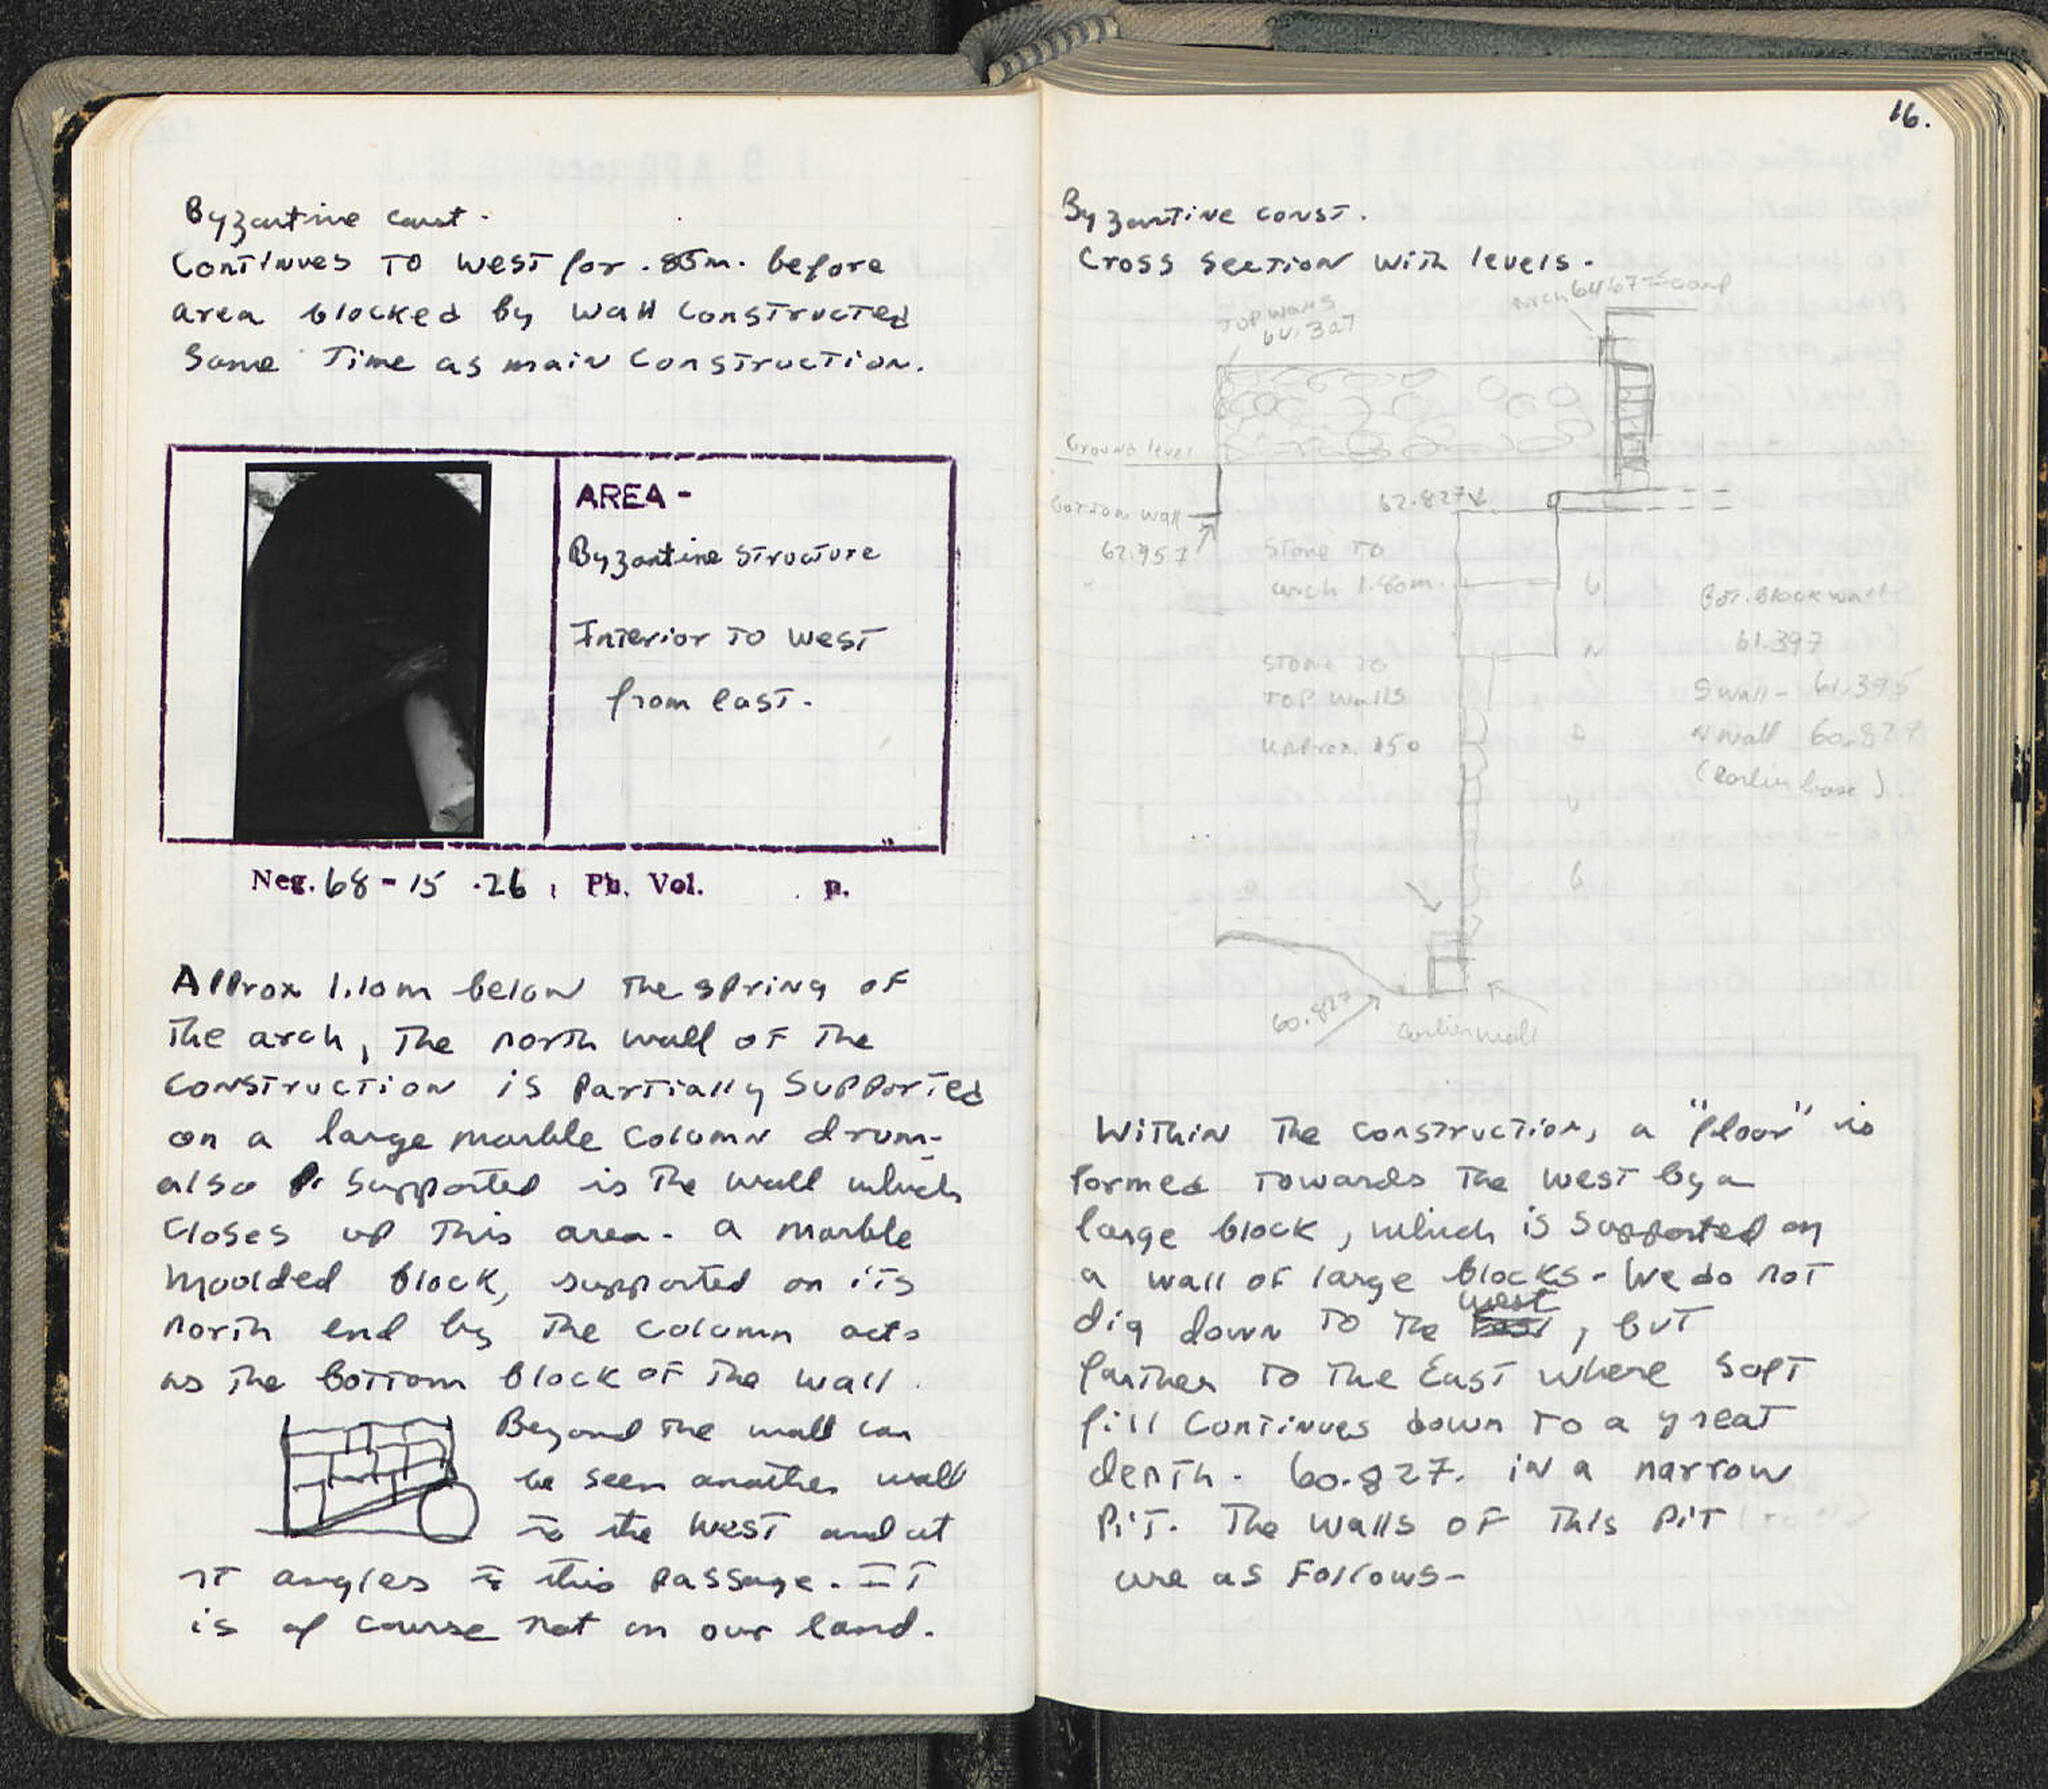 Byzantine const.
Continues to west for .85m. before
area blocked by wall constructed
same time as main construction.
AREA -
Byzantine structure
Interior to west
from east.
Neg. 68 - 15 . 26 , Ph. Vol. . p.
Approx 1.10m below the spring of
the arch, the north wall of the
construction is partially supported
on a large marble column drum-
also supported is the wall which
closes up this area. a marble
moulded block, supported on its
north end by the column acts
as the bottom block of the wall.
Beyond the wall can
be seen another wall
to the west and at
rt angles to this passage. It
is of course not on our land.
16.
Byzantine const.
Cross section with levels.
Top walls
64.327
arch 64.67
Ground level
Bottom wall
62.957
62.827
Stone to
arch 1.80m.
Stone to
top walls
approx. 150
Bot. block wall
61.397
S wall - 61.395
N wall 60.827
(earlier base).
60.827
earlier wall
Within the construction, a "floor" is
formed towards the west by a
large block, which is supported on
a wall of large blocks. We do not
dig down to the west, but
farther to the East where soft
fill continues down to a great
depth. 60.827. in a narrow
pit. The walls of this pit
are as follows-